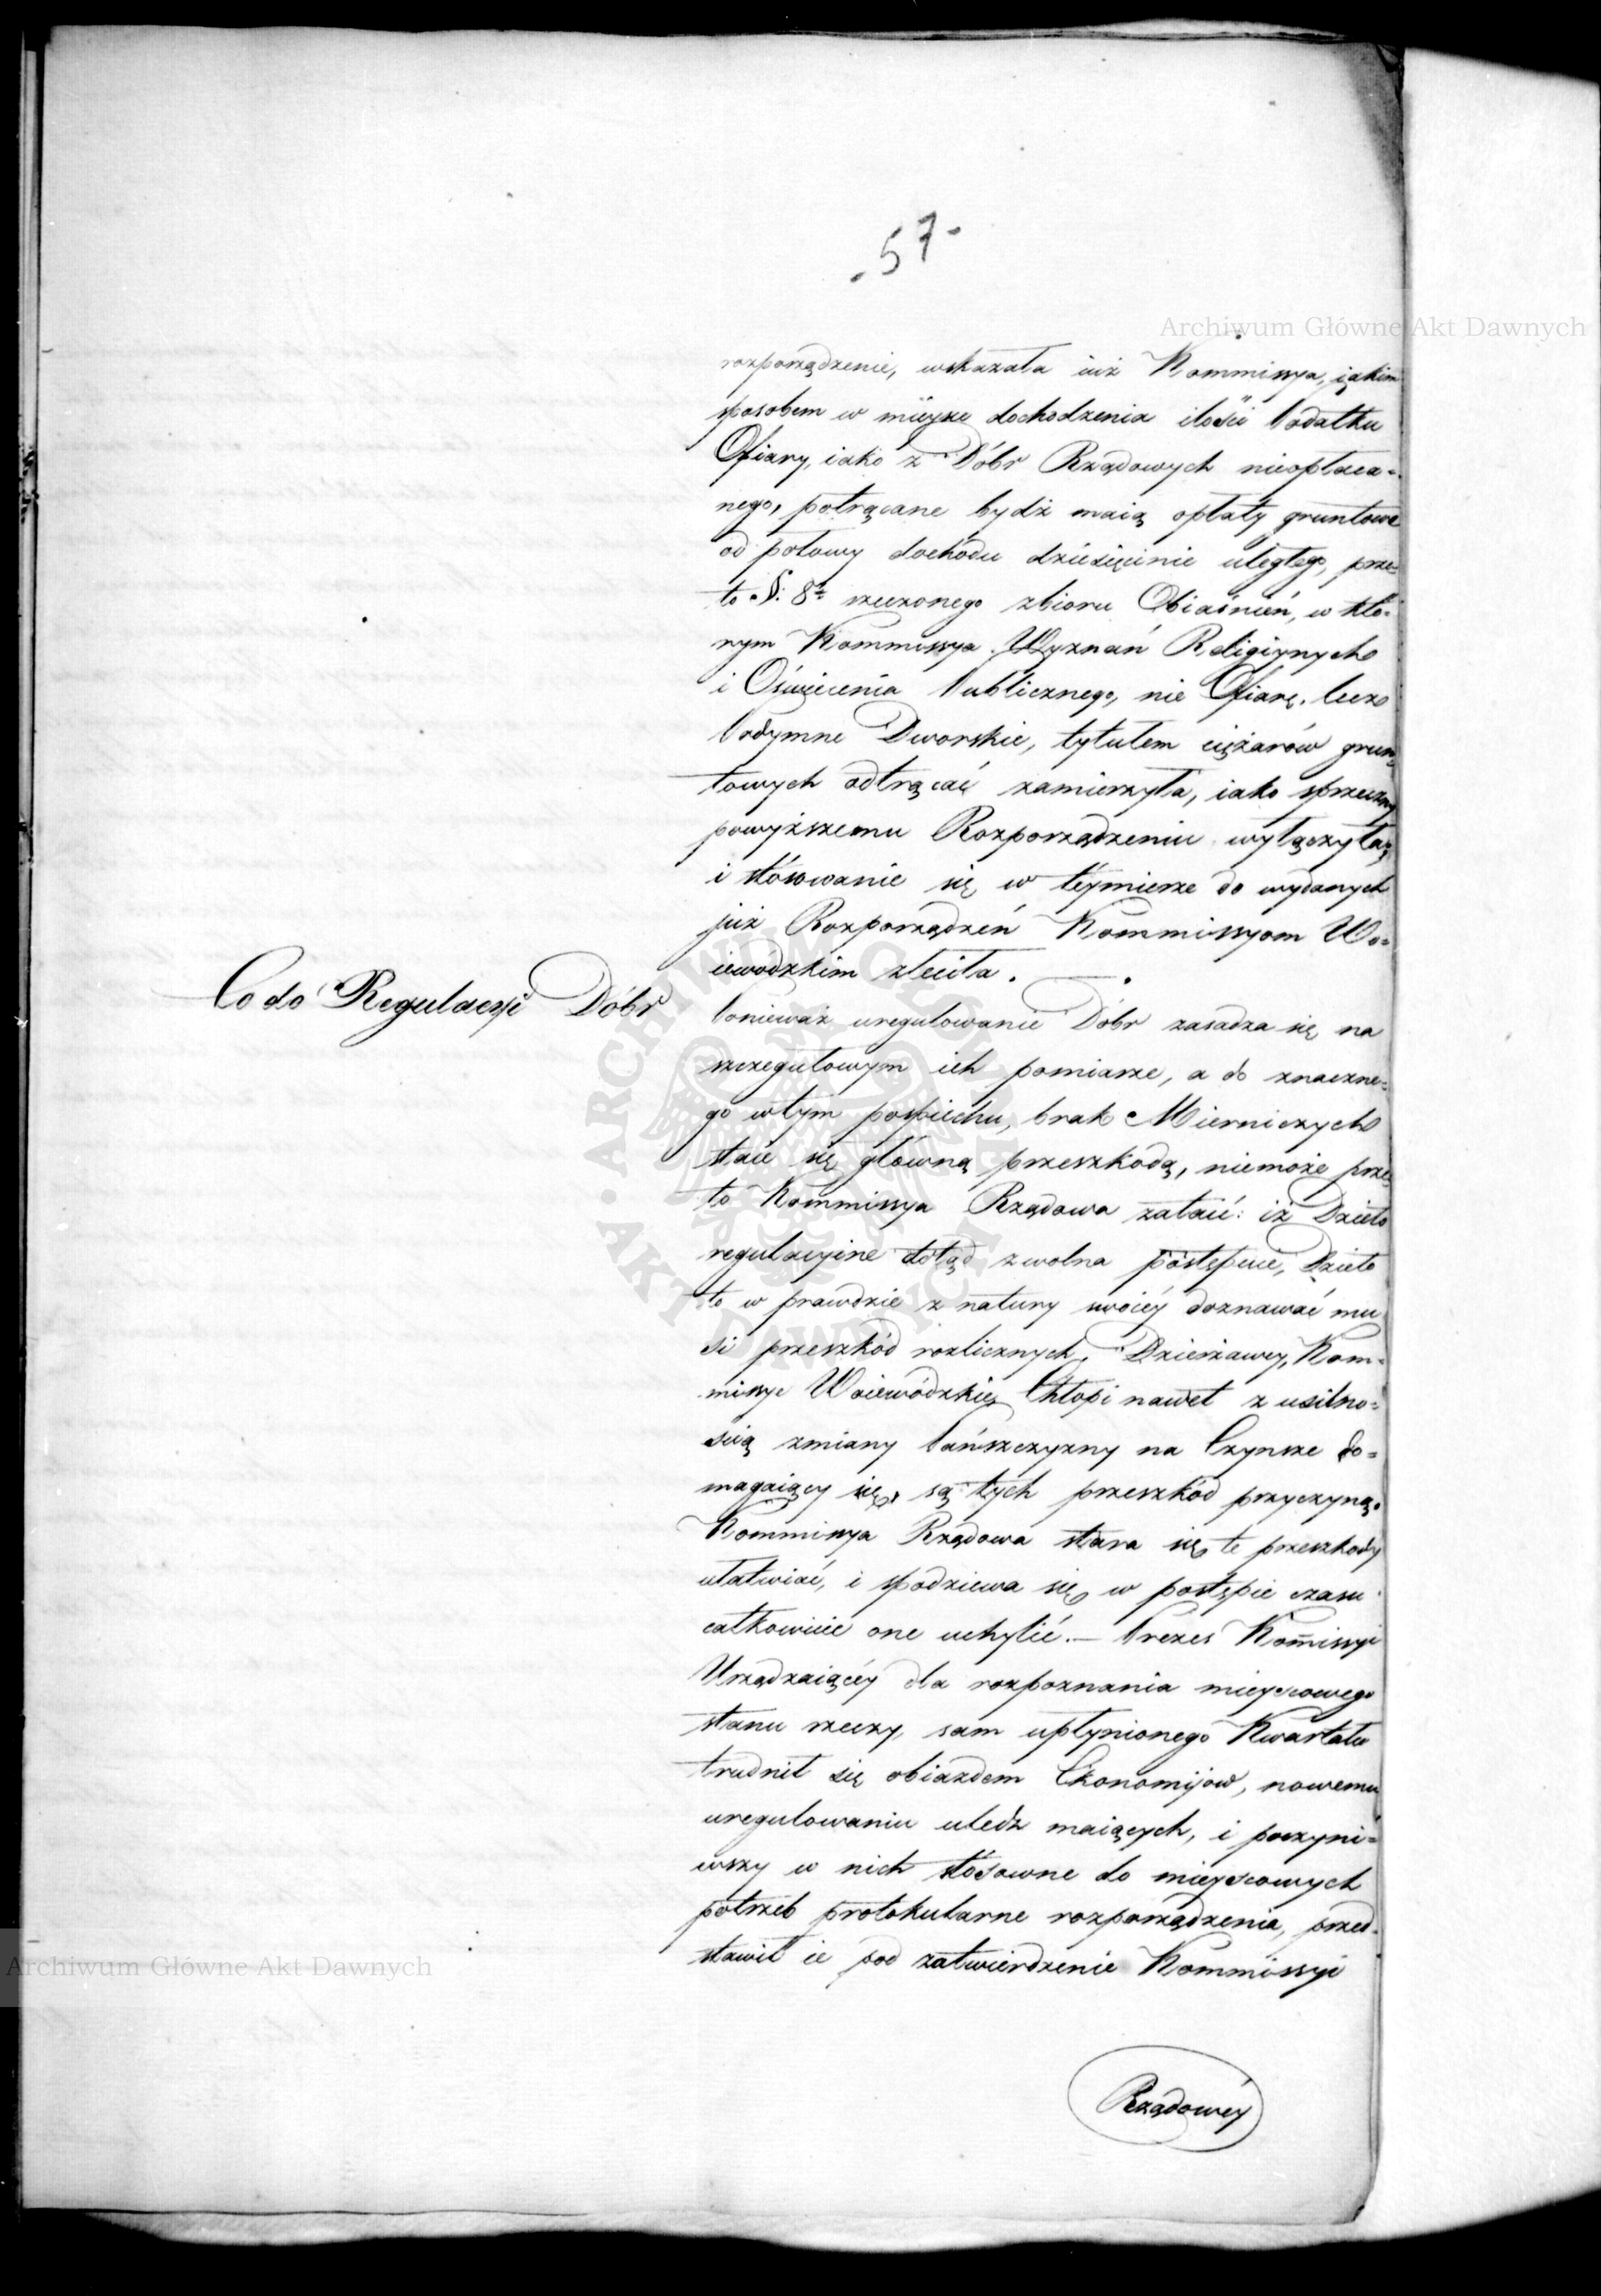 - 57 -
Archiwum Główne Akt Dawnych
rozporządzenie, wskazała iuż Kommissya, iakim
sposobem w mieysce dochodzenia ilości Podatku
Ofiary, iako z Dóbr Rządowych nieopłaca=
nego, potrącane bydź maią opłaty gruntowe
od połowy dochodu dziesięcinie uległego, prze=
to §. 8. rzeczonego zbioru Obiaśnień, w któ=
rym Kommissya Wyznań Religiynych
i Oświecenia Publicznego, nie Ofiarę, lecz
Podymne Dworskie, tytułem ciężarów grun
towych odtrącać zamierzyła, iako sprzeczny
powyższemu Rozporządzeniu wyłączyła,
i stósowanie się w teymierze do wydanych
już Rozporządzeń Kommissyom Wo=
iewódzkim zleciła.
Co do Regulacyi Dóbr
Ponieważ uregulowanie Dóbr zasadza się na
szczegułowym ich pomiarze, a do znaczne=
go wtym pospiechu, brak Mierniczych
staie się główną przeszkodą, niemoże prze
to Kommissya Rządowa zataić: iż Dzieło
regulacyine dotąd zwolna postępuie, Dzieło
to w prawdzie z natury swoiéy doznawać mu
si przeszkód rozlicznych. Dzierżawcy, Kom=
missye Woiewódzkie, Chłopi nawet z usilno=
scią zmiany Pańszczyzny na Czynsze do=
magaiący się, są tych przeszkód przyczyną.
Kommissya Rządowa stara się te przeszkody
ułatwiać, i spodziewa się w postępie czasu
całkowicie one uchylić. — Prezes Kom̄issyi
Urządzaiącéy dla rozpoznania mieyscowego
stanu rzeczy, sam upłynionego Kwartału
trudnił się obiazdem Ekonomijów, nowemu
uregulowaniu uledz maiących, i poczyni=
wszy w nich stósowne do mieyscowych
potrzeb protokularne rozporządzenia, przed=
stawił ie pod zatwierdzenie Kommissyi
Archiwum Główne Akt Dawnych
Rządowéy
ARCHIWUM GŁÓWNE AKT DAWNYCH